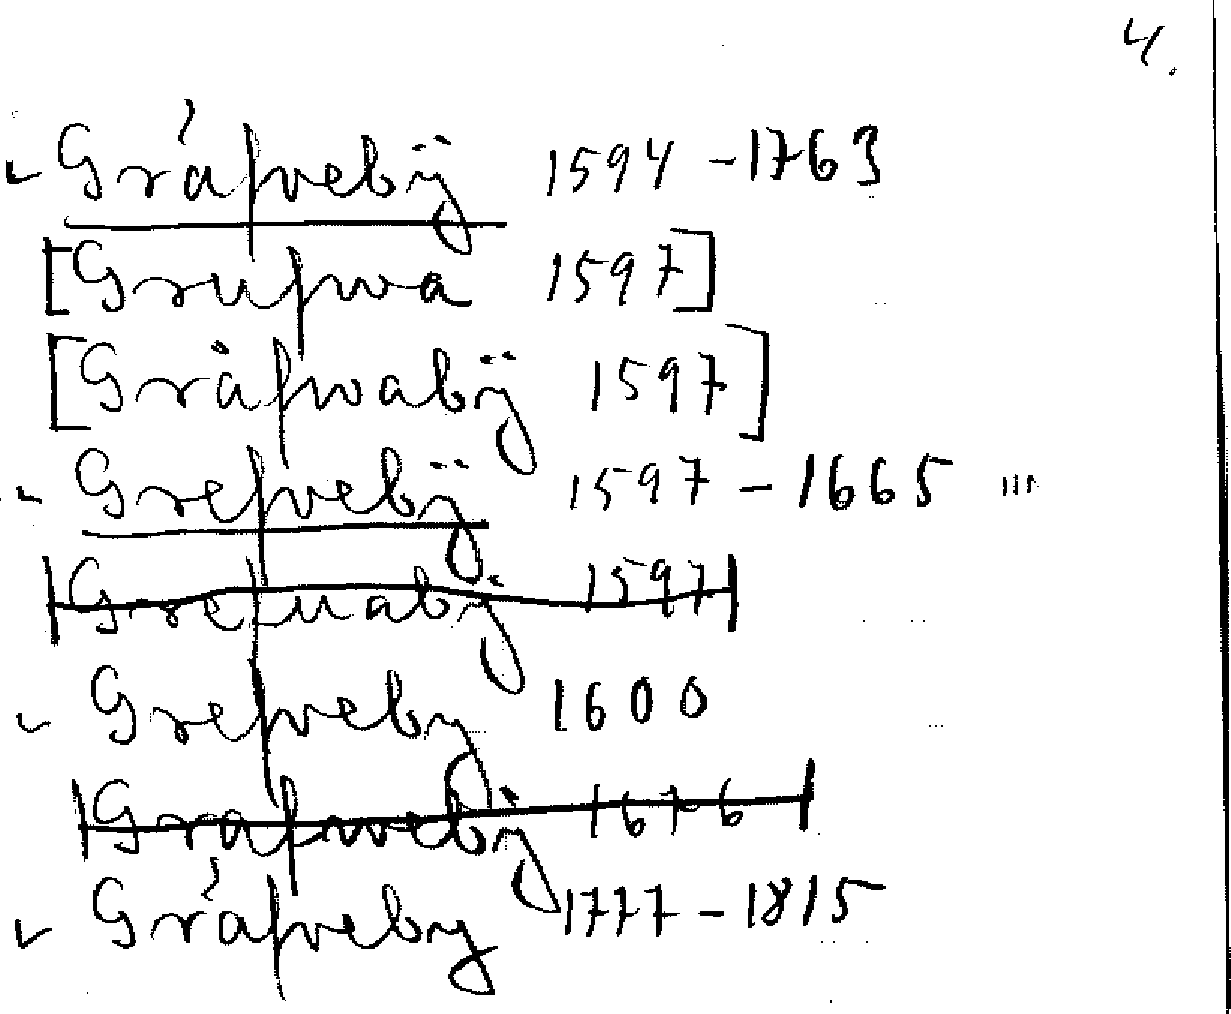 4.
Gráfvebÿ 1594-1763
[Grufwa 1597]
[Gråfwabÿ 1597]
Grefvebÿ 1597-1665 ...
1597
Grefveby 1600
Grafwebÿ 1676
Gráfveby 1777-1815